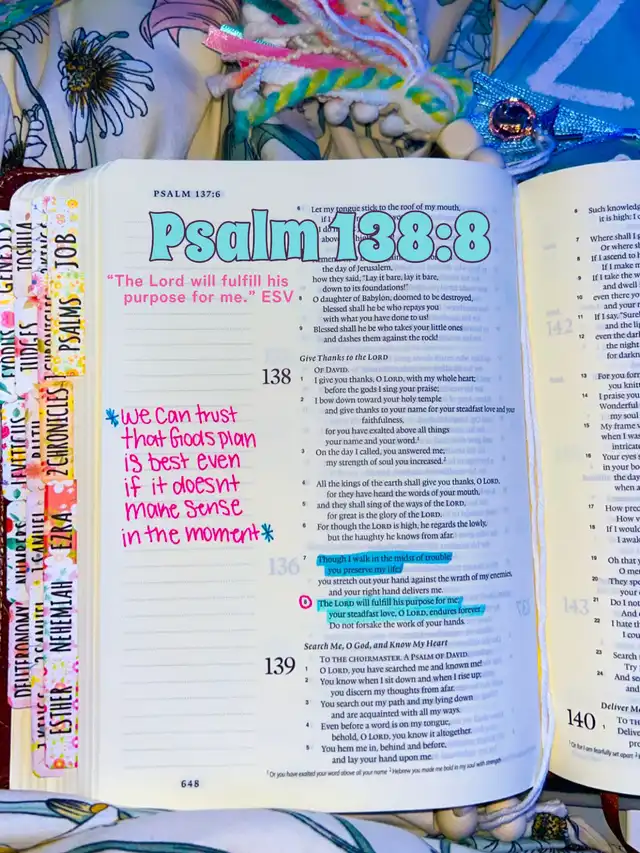 PSALM 137:6
Psalm 138:8
"The Lord will fulfill his
purpose for me." ESV
6 Let my tongue stick to the roof of my mouth,
the day of Jerusalem,
how they said, "Lay it bare, lay it bare,
down to its foundations!"
8 O daughter of Babylon, doomed to be destroyed,
blessed shall he be who repays you
with what you have done to us!
9 Blessed shall he be who takes your little ones
and dashes them against the rock!
Give Thanks to the LORD
138
OF DAVID.
1 I give you thanks, O LORD, with my whole heart;
before the gods I sing your praise;
2 I bow down toward your holy temple
and give thanks to your name for your steadfast love and your
faithfulness,
for you have exalted above all things
your name and your word.¹
3 On the day I called, you answered me;
my strength of soul you increased.²
4 All the kings of the earth shall give you thanks, O LORD,
for they have heard the words of your mouth,
5 and they shall sing of the ways of the LORD,
for great is the glory of the LORD.
6 For though the LORD is high, he regards the lowly,
but the haughty he knows from afar.
7 Though I walk in the midst of trouble,
you preserve my life;
you stretch out your hand against the wrath of my enemies,
and your right hand delivers me.
8 The LORD will fulfill his purpose for me;
your steadfast love, O LORD, endures forever.
Do not forsake the work of your hands.
Search Me, O God, and Know My Heart
139
TO THE CHOIRMASTER. A PSALM OF DAVID.
1 O LORD, you have searched me and known me!
2 You know when I sit down and when I rise up;
you discern my thoughts from afar.
3 You search out my path and my lying down
and are acquainted with all my ways.
4 Even before a word is on my tongue,
behold, O LORD, you know it altogether.
5 You hem me in, behind and before,
and lay your hand upon me.
¹ Or you have exalted your word above all your name ² Hebrew you made me bold in my soul with strength
648
*we can trust
that Gods plan
is best even
if it doesnt
make sense
in the moment*
GENESIS
EXODUS
LEVITICUS
NUMBERS
DEUTERONOMY
JOSHUA
JUDGES
RUTH
1 SAMUEL
2 SAMUEL
2 CHRONICLES
EZRA
NEHEMIAH
ESTHER
JOB
PSALMS
Such knowledge
it is high; I c
7 Where shall I g
Or where sh
8 If I ascend to h
If I make m
9 If I take the w
and dwell i
10 even there yo
and your r
11 If I say, "Sure
and the lig
12 even the dark
the night
for darkn
13 For you form
you knit
14 I praise you
Wonderful
my soul
15 My frame w
when I wa
intricate
16 Your eyes s
in your bo
the days
when a
17 How prec
How
18 If I would
I awak
19 Oh that y
O me
20 They spe
your
21 Do I
And
22 I hate th
I co
23 Search
Try
24 And se
and
Deliver Me
140
TO TH
1 Delive
pro